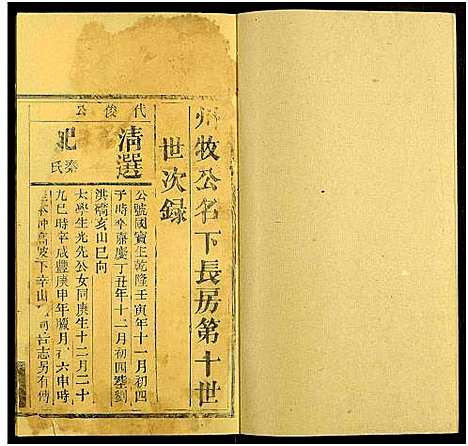 州牧公名下長房第十世
世次錄
代俊公
清選
配秦氏
公號國寶生乾隆壬寅年十一月初四
子時卒嘉慶丁丑年十二月初四塟劉
洪橋亥山巳向
太學生光先公女同庚生十二月二十
九巳時卒咸豐庚申年臘月初六申時
下辛山
志另有傳